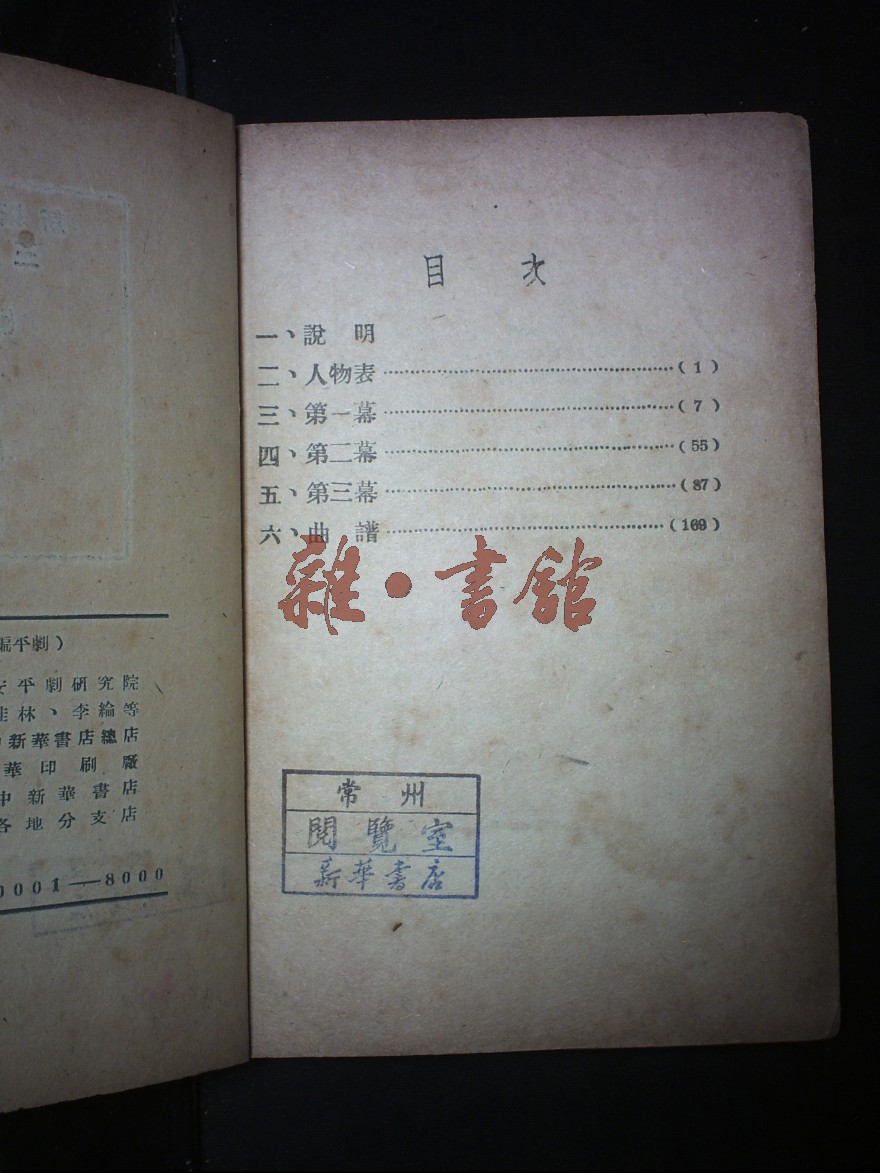 目次
一、說明
二、人物表……(1)
三、第一幕……(7)
四、第二幕……(55)
五、第三幕……(87)
六、曲譜……(169)
雜·書館
常州
閱覽室
新華書店
編平劇)
安平劇研究院
桂林、李綸等
新華書店總店
華印刷廠
中新華書店
各地分支店
0001—8000